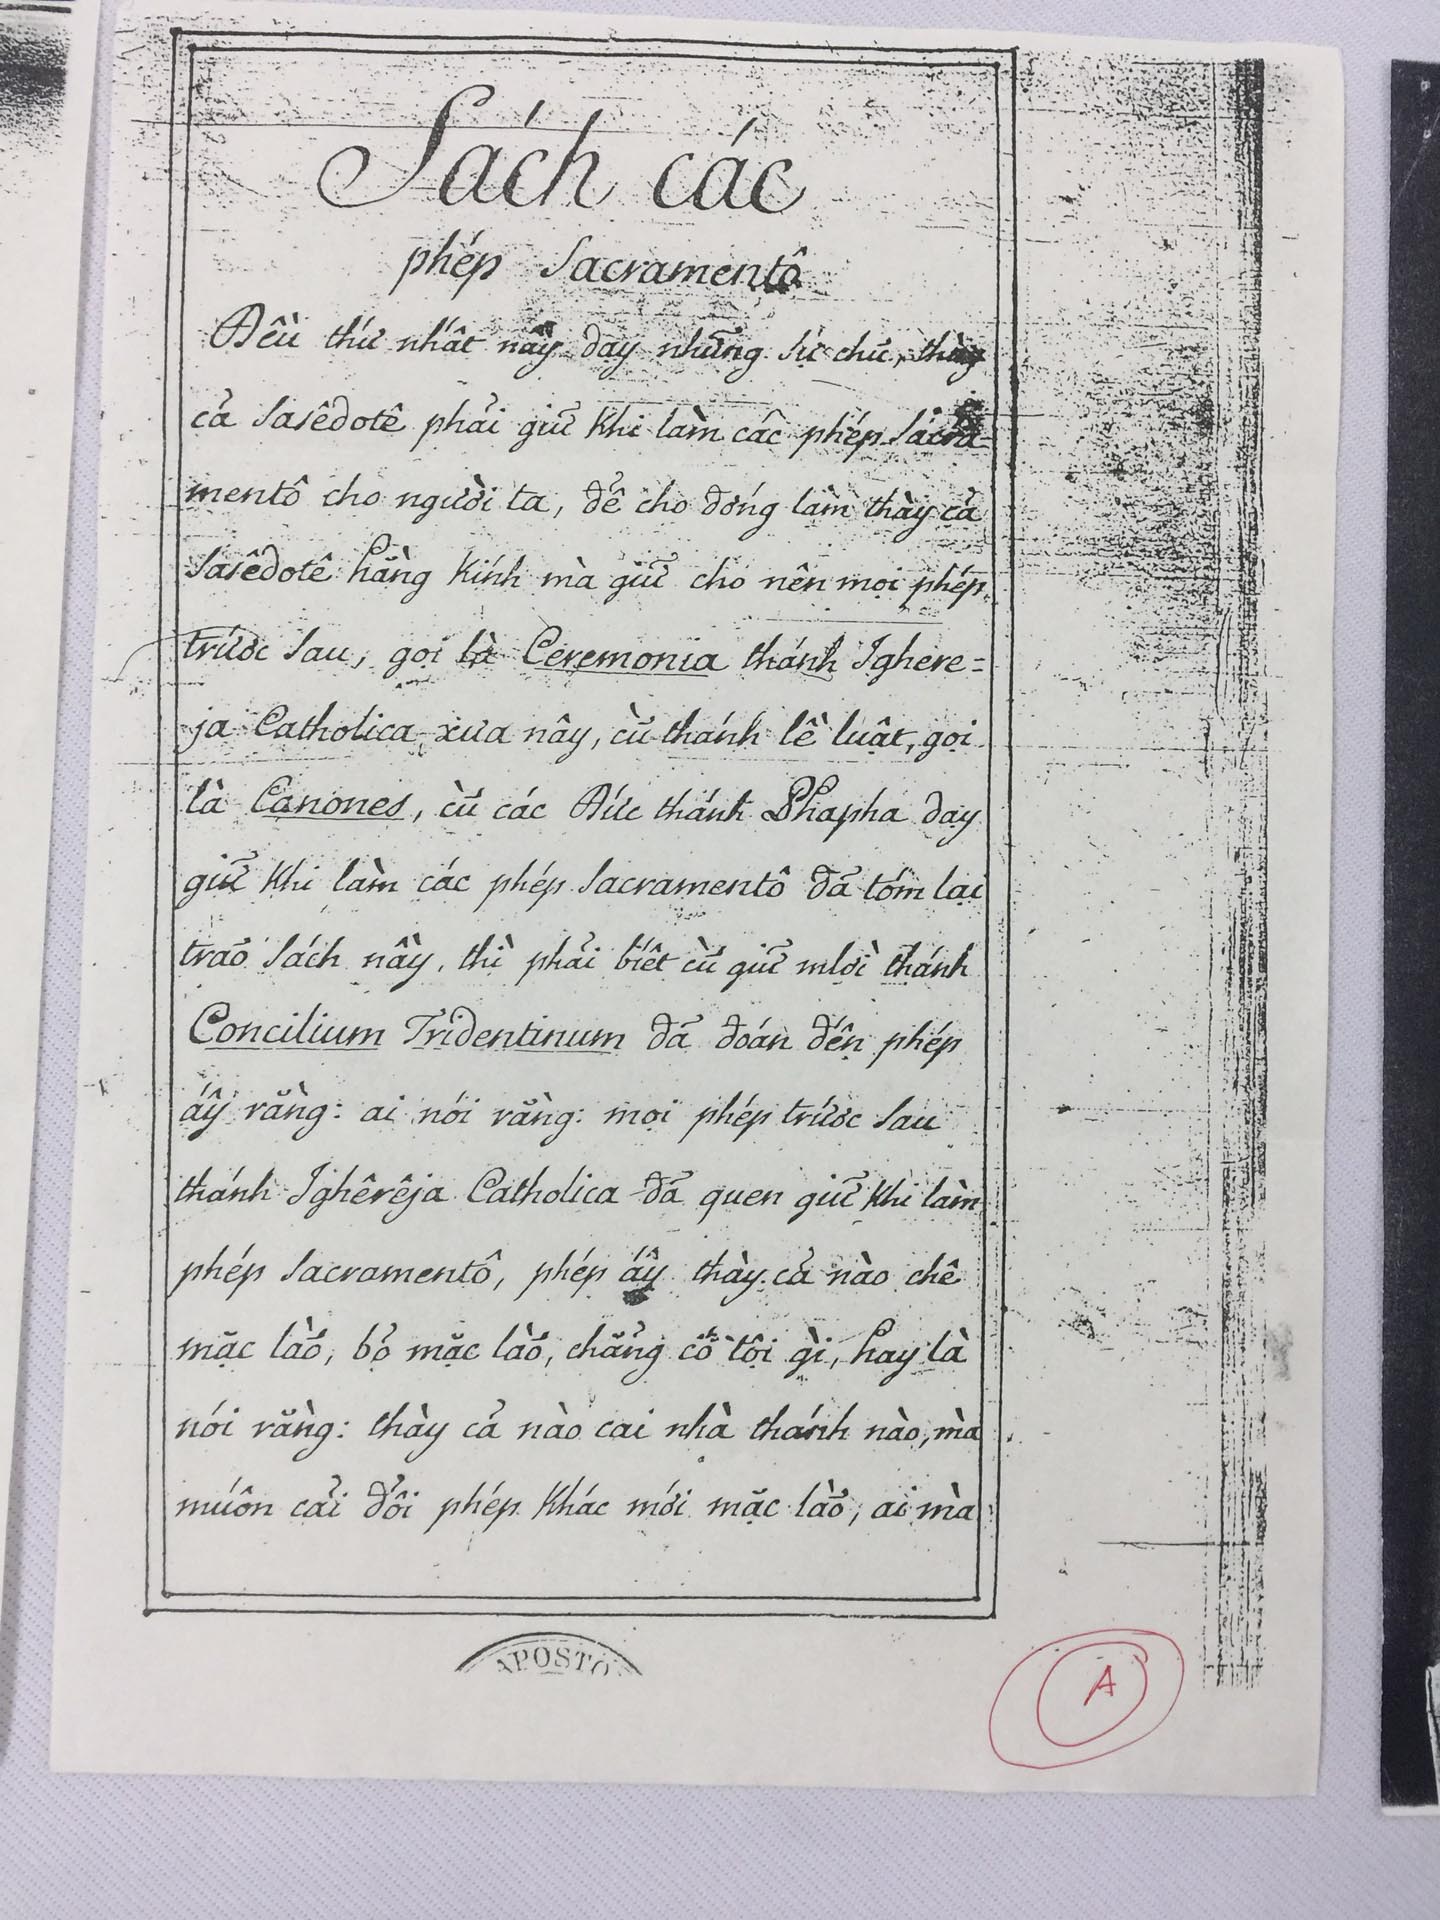 Sách các
phép Sacramentô
Đều thứ nhất nầy dạy những sự chư, thày
cả Sasêdotê phải giữ khi làm các phép Sacra-
mentô cho người ta, để cho đóng làm thày cả
Sasêdotê hằng kính mà giữ cho nên mọi phép
trước sau, gọi là Ceremonia thánh Ighere=
ja Catholica xưa nây, cù thánh lề luật, gọi
là Canones, cũ các Đức thánh Phapha dạy
giữ khi làm các phép Sacramentô đã tóm lại
traõ sách nầy, thì phải biết cũ giữ mlời thánh
Concilium Tridentinum đã đoán đến phép
ấy rằng: ai nói rằng: mọi phép trước sau
thánh Ighêrêja Catholica đã quen giữ khi làm
phép Sacramentô, phép ấy thày cả nào chê
mặc làõ, bỏ mặc làõ, chẳng có tội gì, hay là
nói rằng: thày cả nào cai nhà thánh nào, mà
muốn cải đổi phép khác mới mặc làõ, ai mà
APOSTO
A